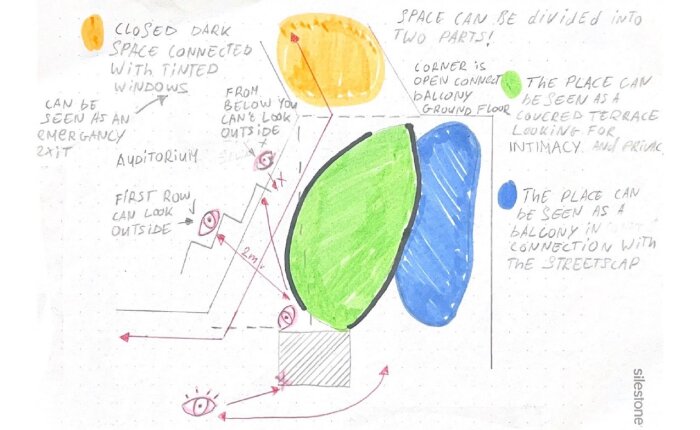 CLOSED DARK
SPACE CONNECTED
WITH TINTED
WINDOWS
CAN BE
SEEN AS AN
EMERGANCY
EXIT
FROM
BELOW YOU
CAN'T LOOK
OUTSIDE
AUDITORIUM
FIRST ROW
CAN LOOK
OUTSIDE
X
2m
SPACE CAN BE divided INTO
TWO PARTS!
CORNER IS
OPEN CONNECT
BALCONY
GROUND FLOOR
THE PLACE CAN
BE SEEN AS A
COVERED TERRACE
LOOKING FOR
INTIMACY AND PRIVAC
THE PLACE CAN
BE SEEN AS A
BALCONY IN
CONNECTION WITH
THE STREETSCAP
silestone